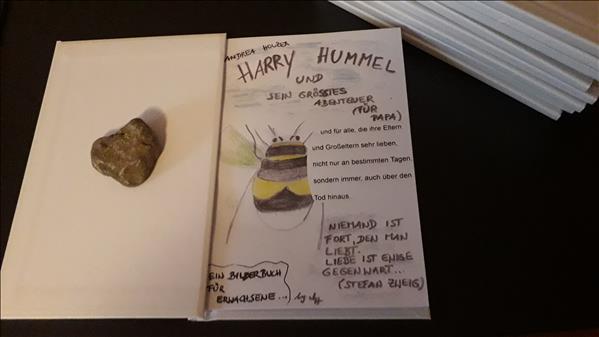 ANDREA HOLZER
HARRY HUMMEL
UND
SEIN GRÖSSTES
ABENTEUER
(FÜR
PAPA)
und für alle, die ihre Eltern
und Großeltern sehr lieben,
nicht nur an bestimmten Tagen,
sondern immer, auch über den
Tod hinaus.
NIEMAND IST
FORT, DEN MAN
LIEBT.
LIEBE IST EWIGE
GEGENWART...
(STEFAN ZWEIG)
EIN BILDERBUCH
FÜR
ERWACHSENE...